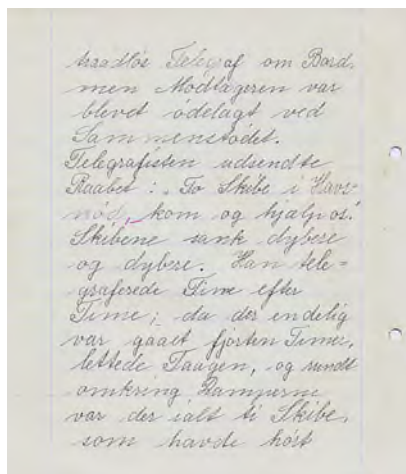 traadløs Telegraf om Bord,
men Modtageren var
blevet ødelagt ved
Sammenstødet.
Telegrafisten udsendte
Raabet: „To Skibe i Havs-
nød, kom og hjælp os!
Skibene sank dybere
og dybere. Han tele-
graferede Time efter
Time; da der endelig
var gaaet fjorten Timer,
lettede Taagen, og rundt
omkring Damperne
var der ialt ti Skibe,
som havde hørt